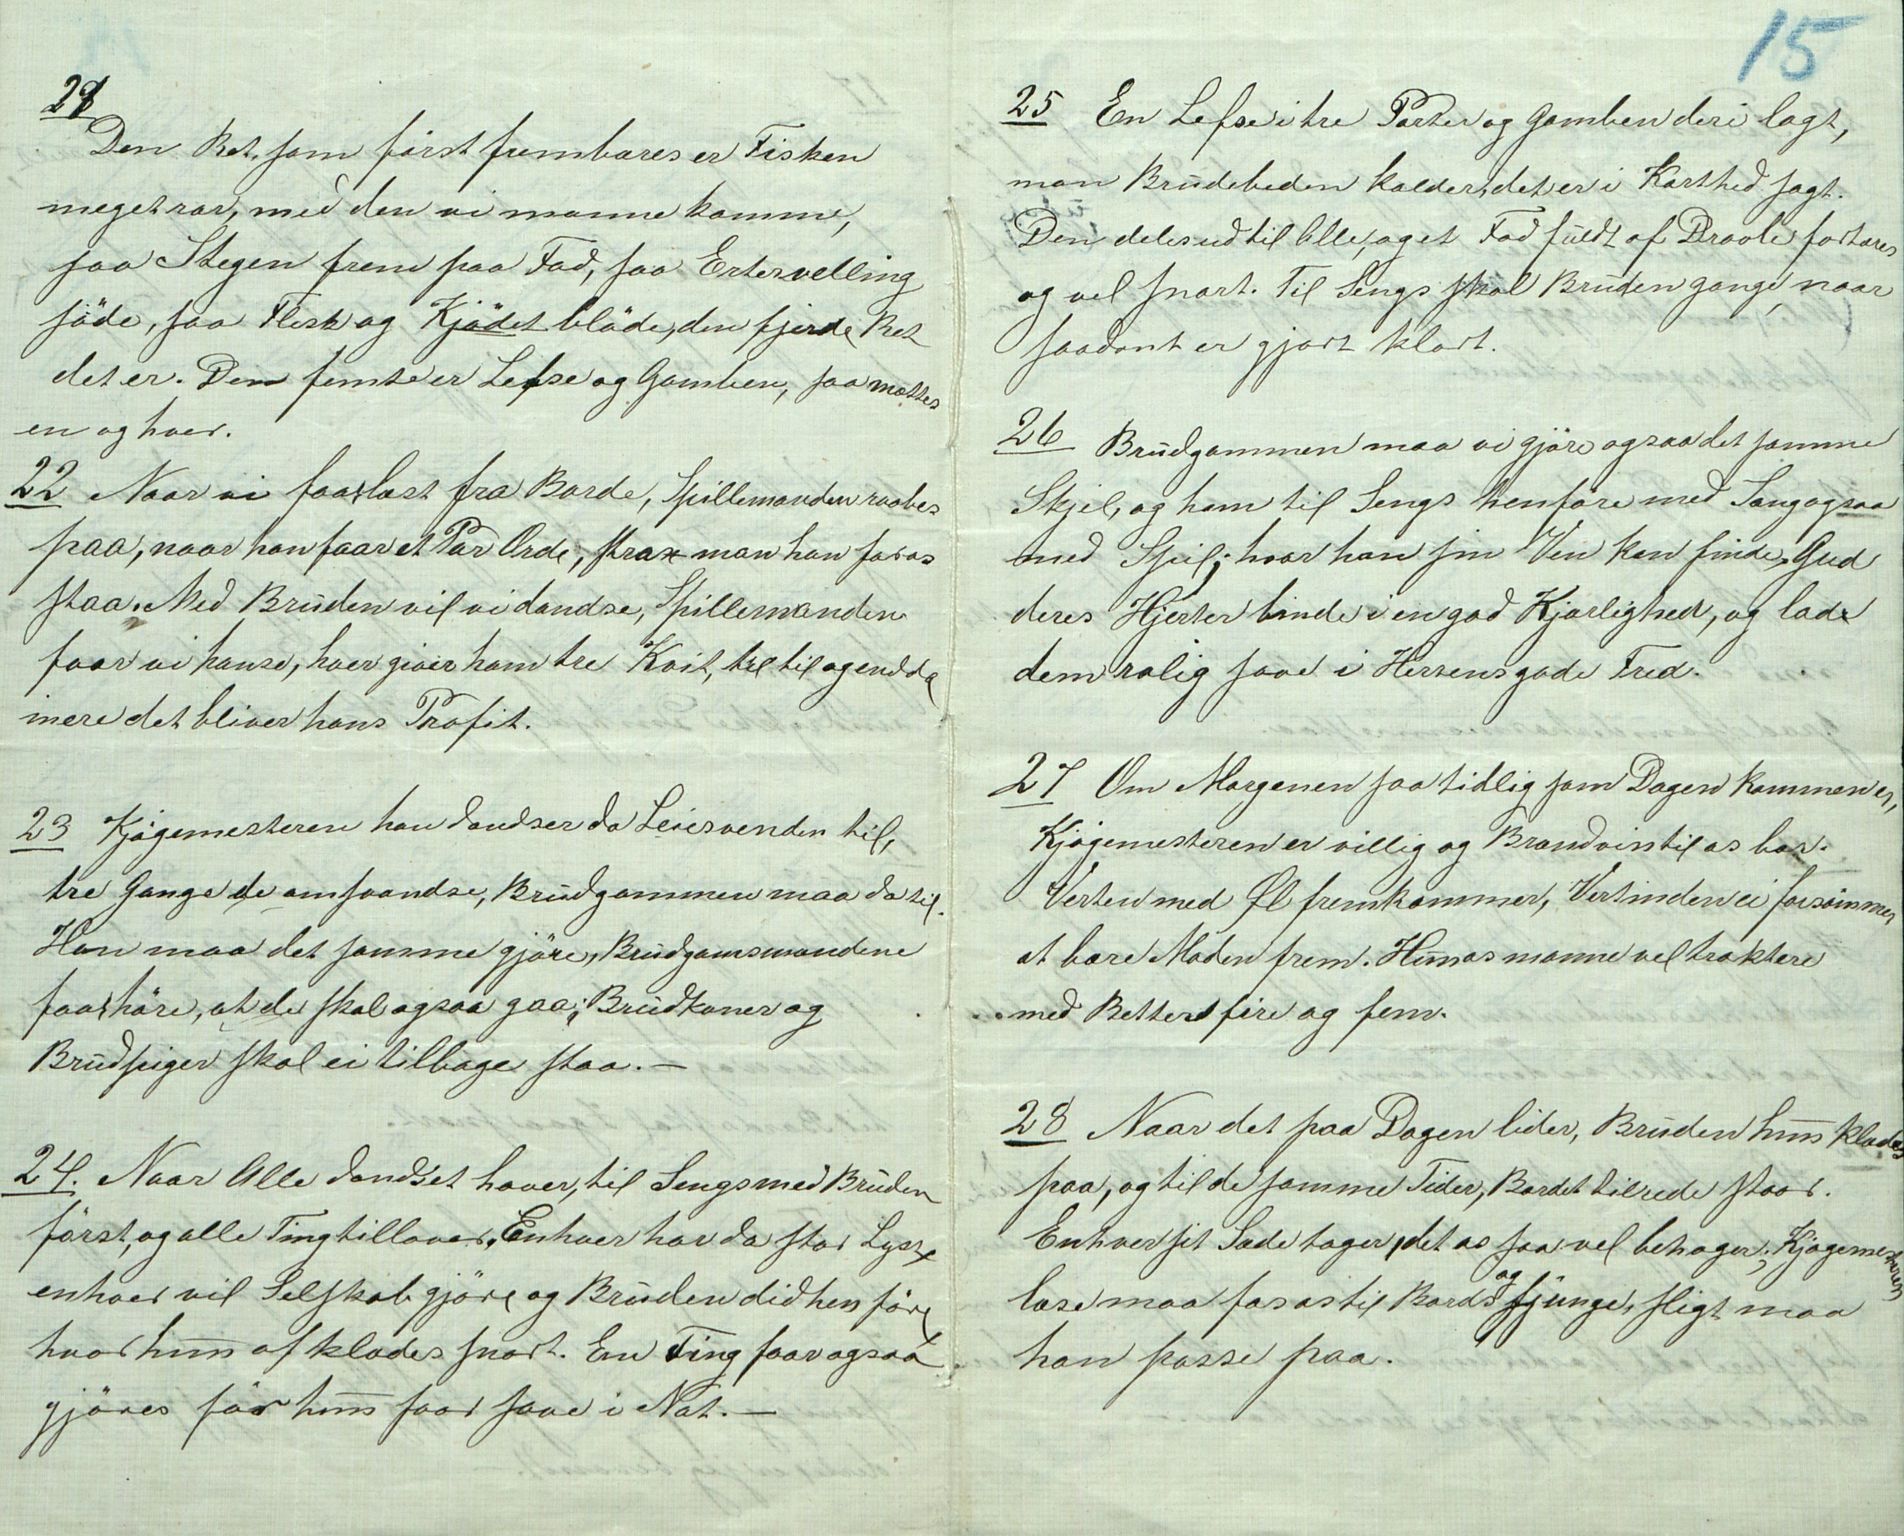 21
Den Ret, som først frembæres er Fisken
meget rar, med den vi monne komme,
saa Stegen frem paa Fad, saa Ertervelling
söde, saa Flesk og Kjödet blöde, den fjerde Ret
det er. Den femte er Lefse og Gomben, saa mættes
en og hver.
22 Naar vi faar læst fra Borde, Spillemanden raabes
paa, naar han faar et Par Orde, strax man han for os
staa. Med Brüden vil vi dandse, Spillemanden
faar vi handse, hver giver ham tre Kvit, til til og endda
mere det bliver hans Profit.
23 Kjögemesteren han dandser da Leiesvenden til,
tre Gange de omsvandse, Brüdgommen maa da til.
Han maa det samme gjöre, Brüdgomsmændene
faar höre, at de skal ogsaa gaa; Brüdkoner og
Brüdpiger skal ei tilbage staa. —
24. Naar Alle dandset haver, til Sengs med Brüden
först, og alle Ting tillaver, Enhver har da stor Lyst
enhver vil Selskab gjöre og Brüden did hen före
hvor hun afklædes snart. En Ting faar ogsaa
gjöres för hun faar sove i Nat. —
15
25 En Lefse i tre Parter og Gomben deri lagt,
man Brüdebeden kalder, det er i Korthed sagt.
Den deles ud til Alle, og et Fad füldt af Dravle fortæres
og vel snart. Til Sengs skal Brüden gange, naar
saadant er gjort klart.
26 Brüdgommen maa vi gjöre ogsaa det samme
Skjel, og ham til Sengs henföre med Sang ogsaa
med Spil; hvor han sin Ven kan finde, Gud
deres Hjerter binde i en god Kjærlighed, og lade
dem rolig sove i Herrens gode Fred.
27 Om Morgenen saa tidlig som Dagen kommen er,
Kjögemesteren er villig og Brændvin til os bær.
Verten med Øl fremkommer, Vertinden ei forsömmer
at bære Maden frem. Hun os monne vel traktere
med Retter fire og fem.
28 Naar det paa Dagen lider, Brüden hun klædes
paa, og til de samme Tider, Bordet tilrede staar.
Enhver sit Sæde tager, det os saa vel behager, Kjögemesteren
læse maa for os til Bords og sjünge, sligt maa
han passe paa.